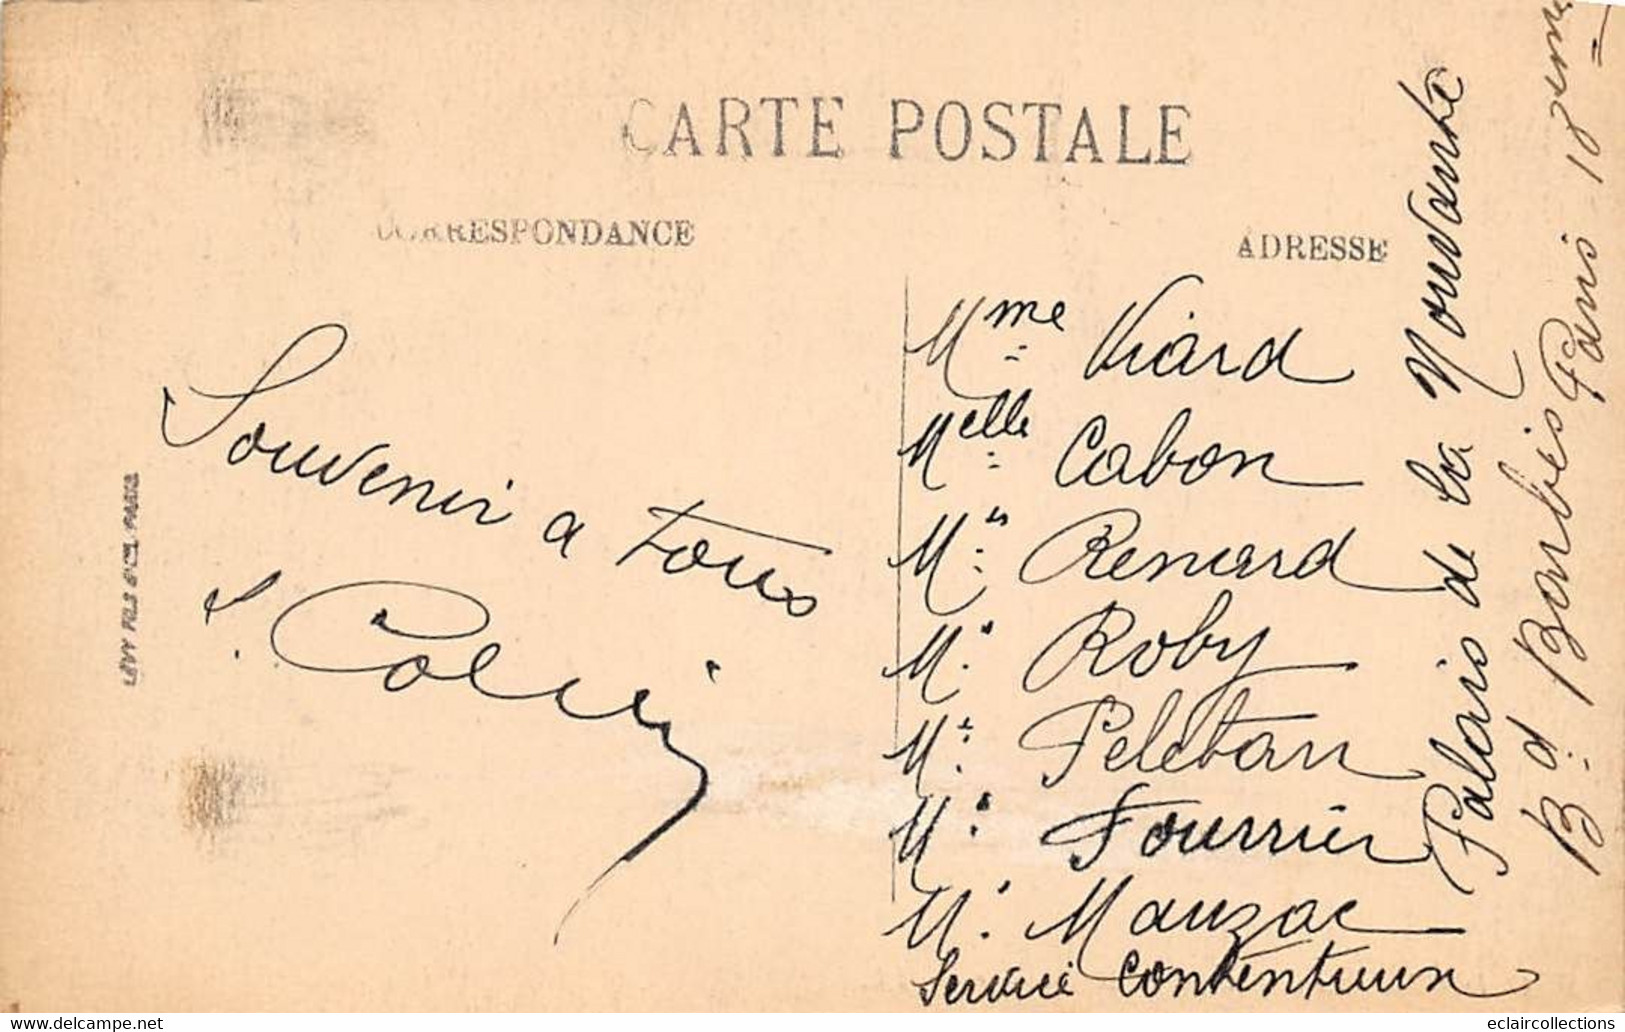 CARTE POSTALE
CORRESPONDANCE
ADRESSE
Souvenir a tous
LÉVY FILS & CIE, PARIS
Mme Viard
Melle Cabon
Mr Renard
Mr Roby
Mr Peletan
Mr Fourrier
Mr Mauzac
Service Contentieux
Palais de la Nouvauté
Bd Barbès Paris 18eme
delcampe.net
eclaircollections